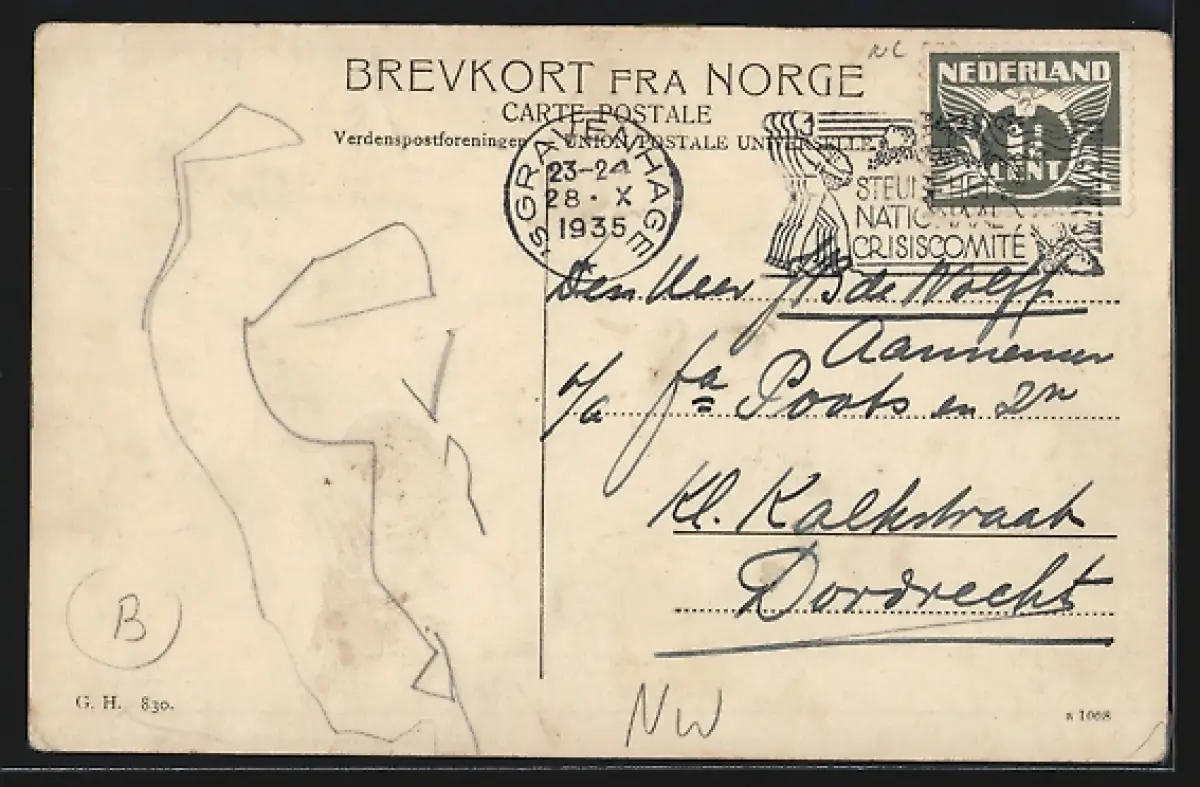 NC
BREVKORT FRA NORGE
CARTE POSTALE
Verdenspostforeningen – UNION POSTALE UNIVERSELLE
NEDERLAND
CENT
'SGRAVENHAGE
23-24
28 · X
1935
STEUNT HET
NATIONAAL
CRISISCOMITÉ
Den Heer J B de Wolff
Aannemer
p/a fa Poots en Zn
Kl. Kalkstraat
Dordrecht
B
G. H. 830.
NW